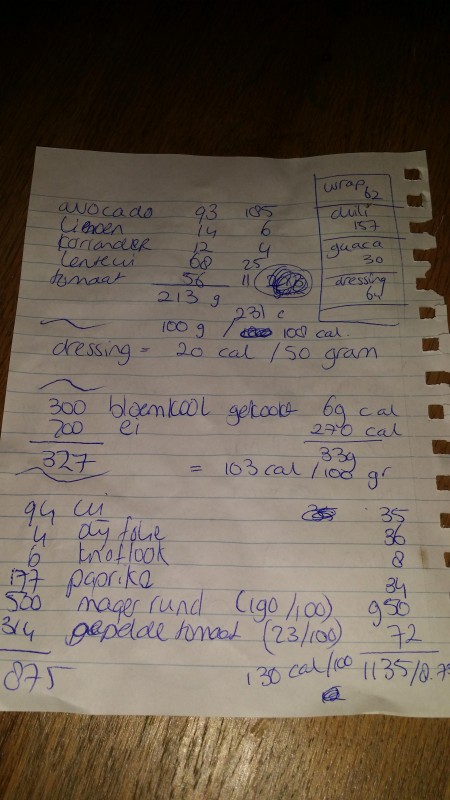 avocado 93 185
limoen 14 6
koriander 12 4
lenteui 68 25
tomaat 56 11
213 g
231 c
100 g / 108 cal.
dressing = 20 cal / 50 gram
wrap
62
chili
157
guaca
30
dressing
64
300 bloemkool gekookt 69 cal
200 ei 270 cal
327 339
= 103 cal / 100 gr
94 ui 35
4 olijfolie 36
6 knoflook 8
177 paprika 34
500 mager rund (190/100) 950
314 gepelde tomaat (23/100) 72
875 130 cal/100 1135/8.75